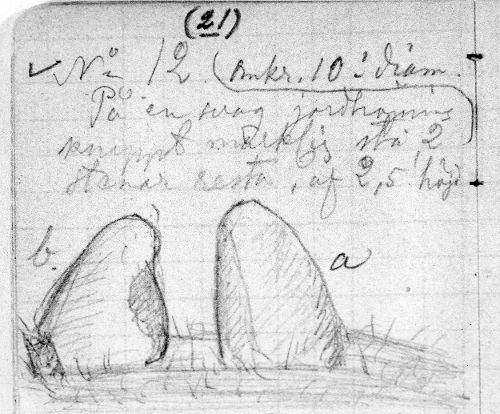 (21)
No 12 (Omkr. 10' diam.
På en svag jordhöjning
knappt märklig stå 2
stenar resta, af 2,5' höjd
b. a